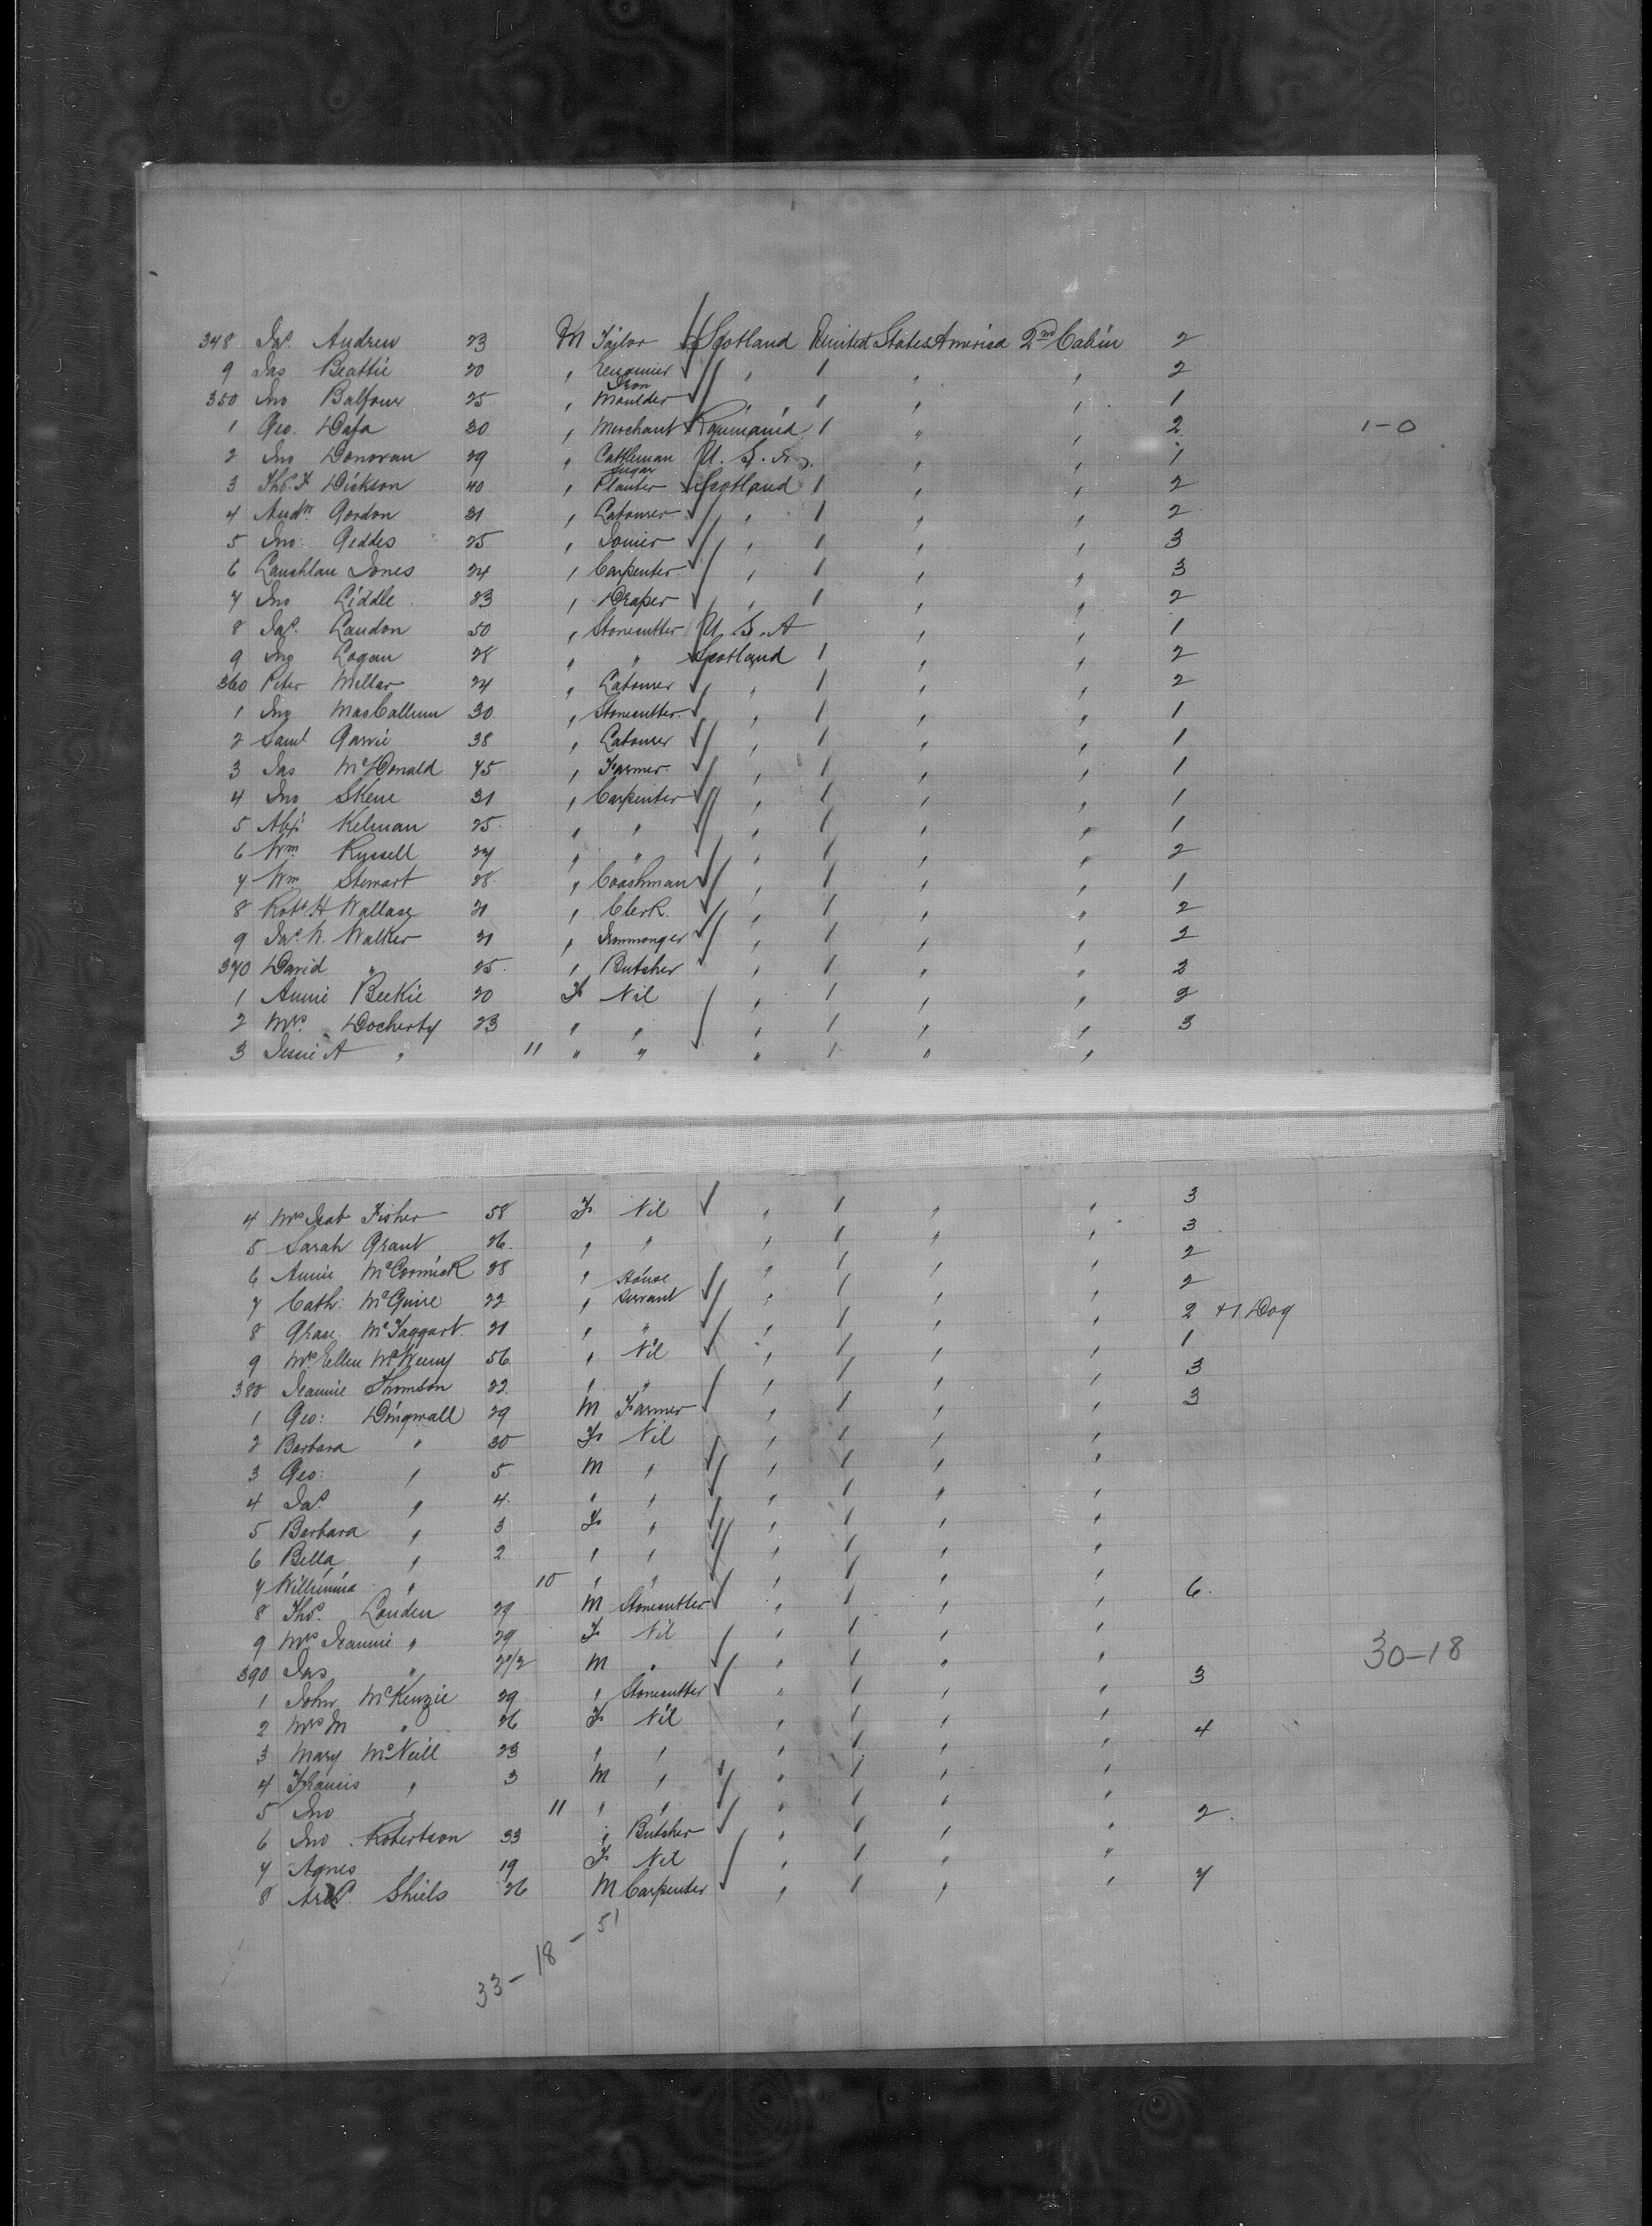 348 Jas. Andrew 23 M Taylor Scotland United States America 2nd Cabin 2
9 Jas Beattie 20 " Engineer " " " " 2
350 Jno Balfour 25 " Iron Moulder " " " " 1
1 Geo. Dafa 30 " Merchant Roumania " " " 2 1-0
2 Jno Donovan 29 " Cattleman U. S. A. " " 1
3 Thos. F Dickson 40 " Sugar Planter Scotland " " " 2
4 Andw Gordon 31 " Labourer " " " " 2
5 Jno. Geddes 25 " Joiner " " " " 3
6 Lauchlan Jones 24 " Carpenter " " " " 3
7 Jno Liddle 23 " Draper " " " " 2
8 Jas. Landon 50 " Stonecutter U. S. A " " 1
9 Jno Logan 28 " " Scotland " " " 2
360 Peter Millar 24 " Labourer " " " " 2
1 Jno MacCallum 30 " Stonecutter " " " " 1
2 Saml Garvie 38 " Labourer " " " " 1
3 Jas McDonald 45 " Farmer " " " " 1
4 Jno Skene 31 " Carpenter " " " " 1
5 Alex Kelman 25 " " " " " " 1
6 Wm Russell 24 " " " " " " 2
7 Wm Stewart 28 " Coachman " " " " 1
8 Robt H Wallace 21 " Clerk " " " " 2
9 Jas. W. Walker 21 " Ironmonger " " " " 2
370 David " 25 " Butcher " " " " 2
1 Annie Beekie 20 F Nil " " " " 2
2 Mrs. Docherty 23 " " " " " " 3
3 Jessie A " 11 " " " " " "
4 Mrs Isab Fisher 58 F Nil " " " " 3
5 Sarah Grant 26 " " " " " " 3
6 Annie McCormick 28 " House " " " " 2
7 Cath: McGuire 22 " Servant " " " " 2
8 Grace McTaggart 21 " " " " " " 2 +1 Dog
9 Mrs. Ellen 56 " Nil " " " " 1
380 Jeannie Thomson 22 " " " " " " 3
1 Geo: Dingwall 29 M Farmer " " " " 3
2 Barbara " 30 F Nil " " " "
3 Geo: " 5 M " " " " "
4 Jas. " 4 " " " " " "
5 Barbara " 3 F " " " " "
6 Bella " 2 " " " " " "
7 Willimina " 10 " " " " " "
8 Thos. Louden 29 M Stonecutter " " " " 6.
9 Mrs Jeannie " 29 F Nil " " " "
390 Jas " 2 1/2 M " " " " " 30-18
1 John McKenzie 29 " Stonecutter " " " " 3
2 Mrs M " 26 F Nil " " " "
3 Mary McNeill 23 " " " " " " 4
4 Francis " 3 M " " " " "
5 Jno " 11 " " " " " "
6 Jno. Robertson 33 " Butcher " " " " 2.
7 Agnes " 19 F Nil " " " "
8 Arch. Shiels 26 M Carpenter " " " " 7
33 - 18 - 51